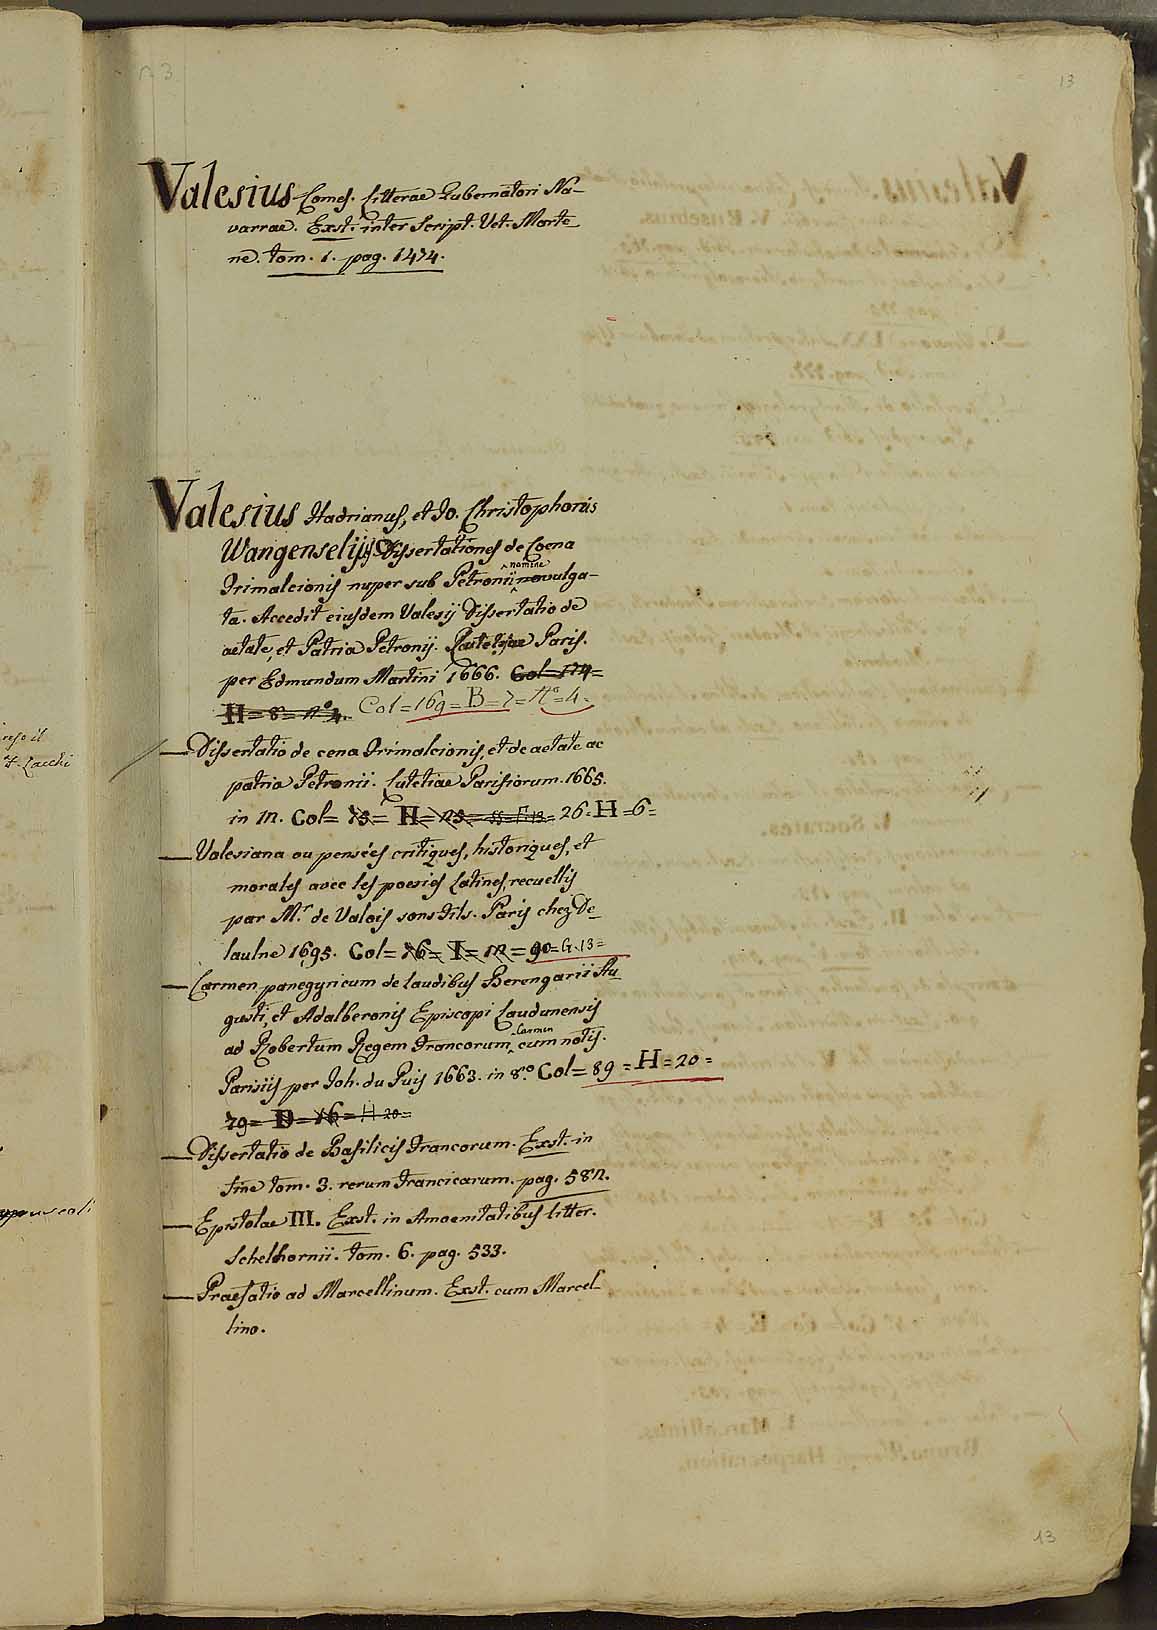 13
Valesius Comes. Litterae Gubernatori Na-
varrae. Exst. inter Script. Vet. Marte
ne. tom. 1. pag. 1474.
Valesius Hadrianus, et Jo. Christophorus
Wangenselijs Dissertationes de Coena
nomine
Trimalcionis nuper sub Petronii vulga-
ta. Accedit eiusdem Valesij Dissertatio de
aetate, et Patria Petronij. Lutetiae Paris.
per Edmundum Martini 1666. Col 174=
H=8=N.º 4. Col=169=B=7=N.º=4=
— Dissertatio de cena Trimalcionis, et de aetate ac
patria Petronii. Lutetiae Parisiorum. 1665.
in 12. Col= 75= H= 25= 26. H=6=
— Valesiana ou pensées critiques, historiques, et
morales avec les poesies Latines, recuellis
par M.r de Valois sons fils. Paris chez De
laulne 1695. Col= 76= I= 12= 90= G. 13=
— Carmen panegyricum de laudibus Berengarii Au
gusti, et Adalberonis Episcopi Laudunensis
Carmen
ad Robertum Regem Francorum cum notis.
Parisiis per Joh. du Puis 1663. in 8.º Col= 89=H=20=
79= D= 16= H 20=
— Dissertatio de Basilicis Francorum. Exst. in
fine tom. 3. rerum Francicarum. pag. 582.
— Epistolae III. Exst. in Amoenitatibus litter.
Schelhornii. tom. 6. pag. 533.
— Praefatio ad Marcellinum. Exst. cum Marcel
lino.
13